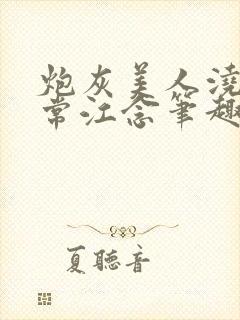 炮灰美人浇
常江念笔趣
夏聽音